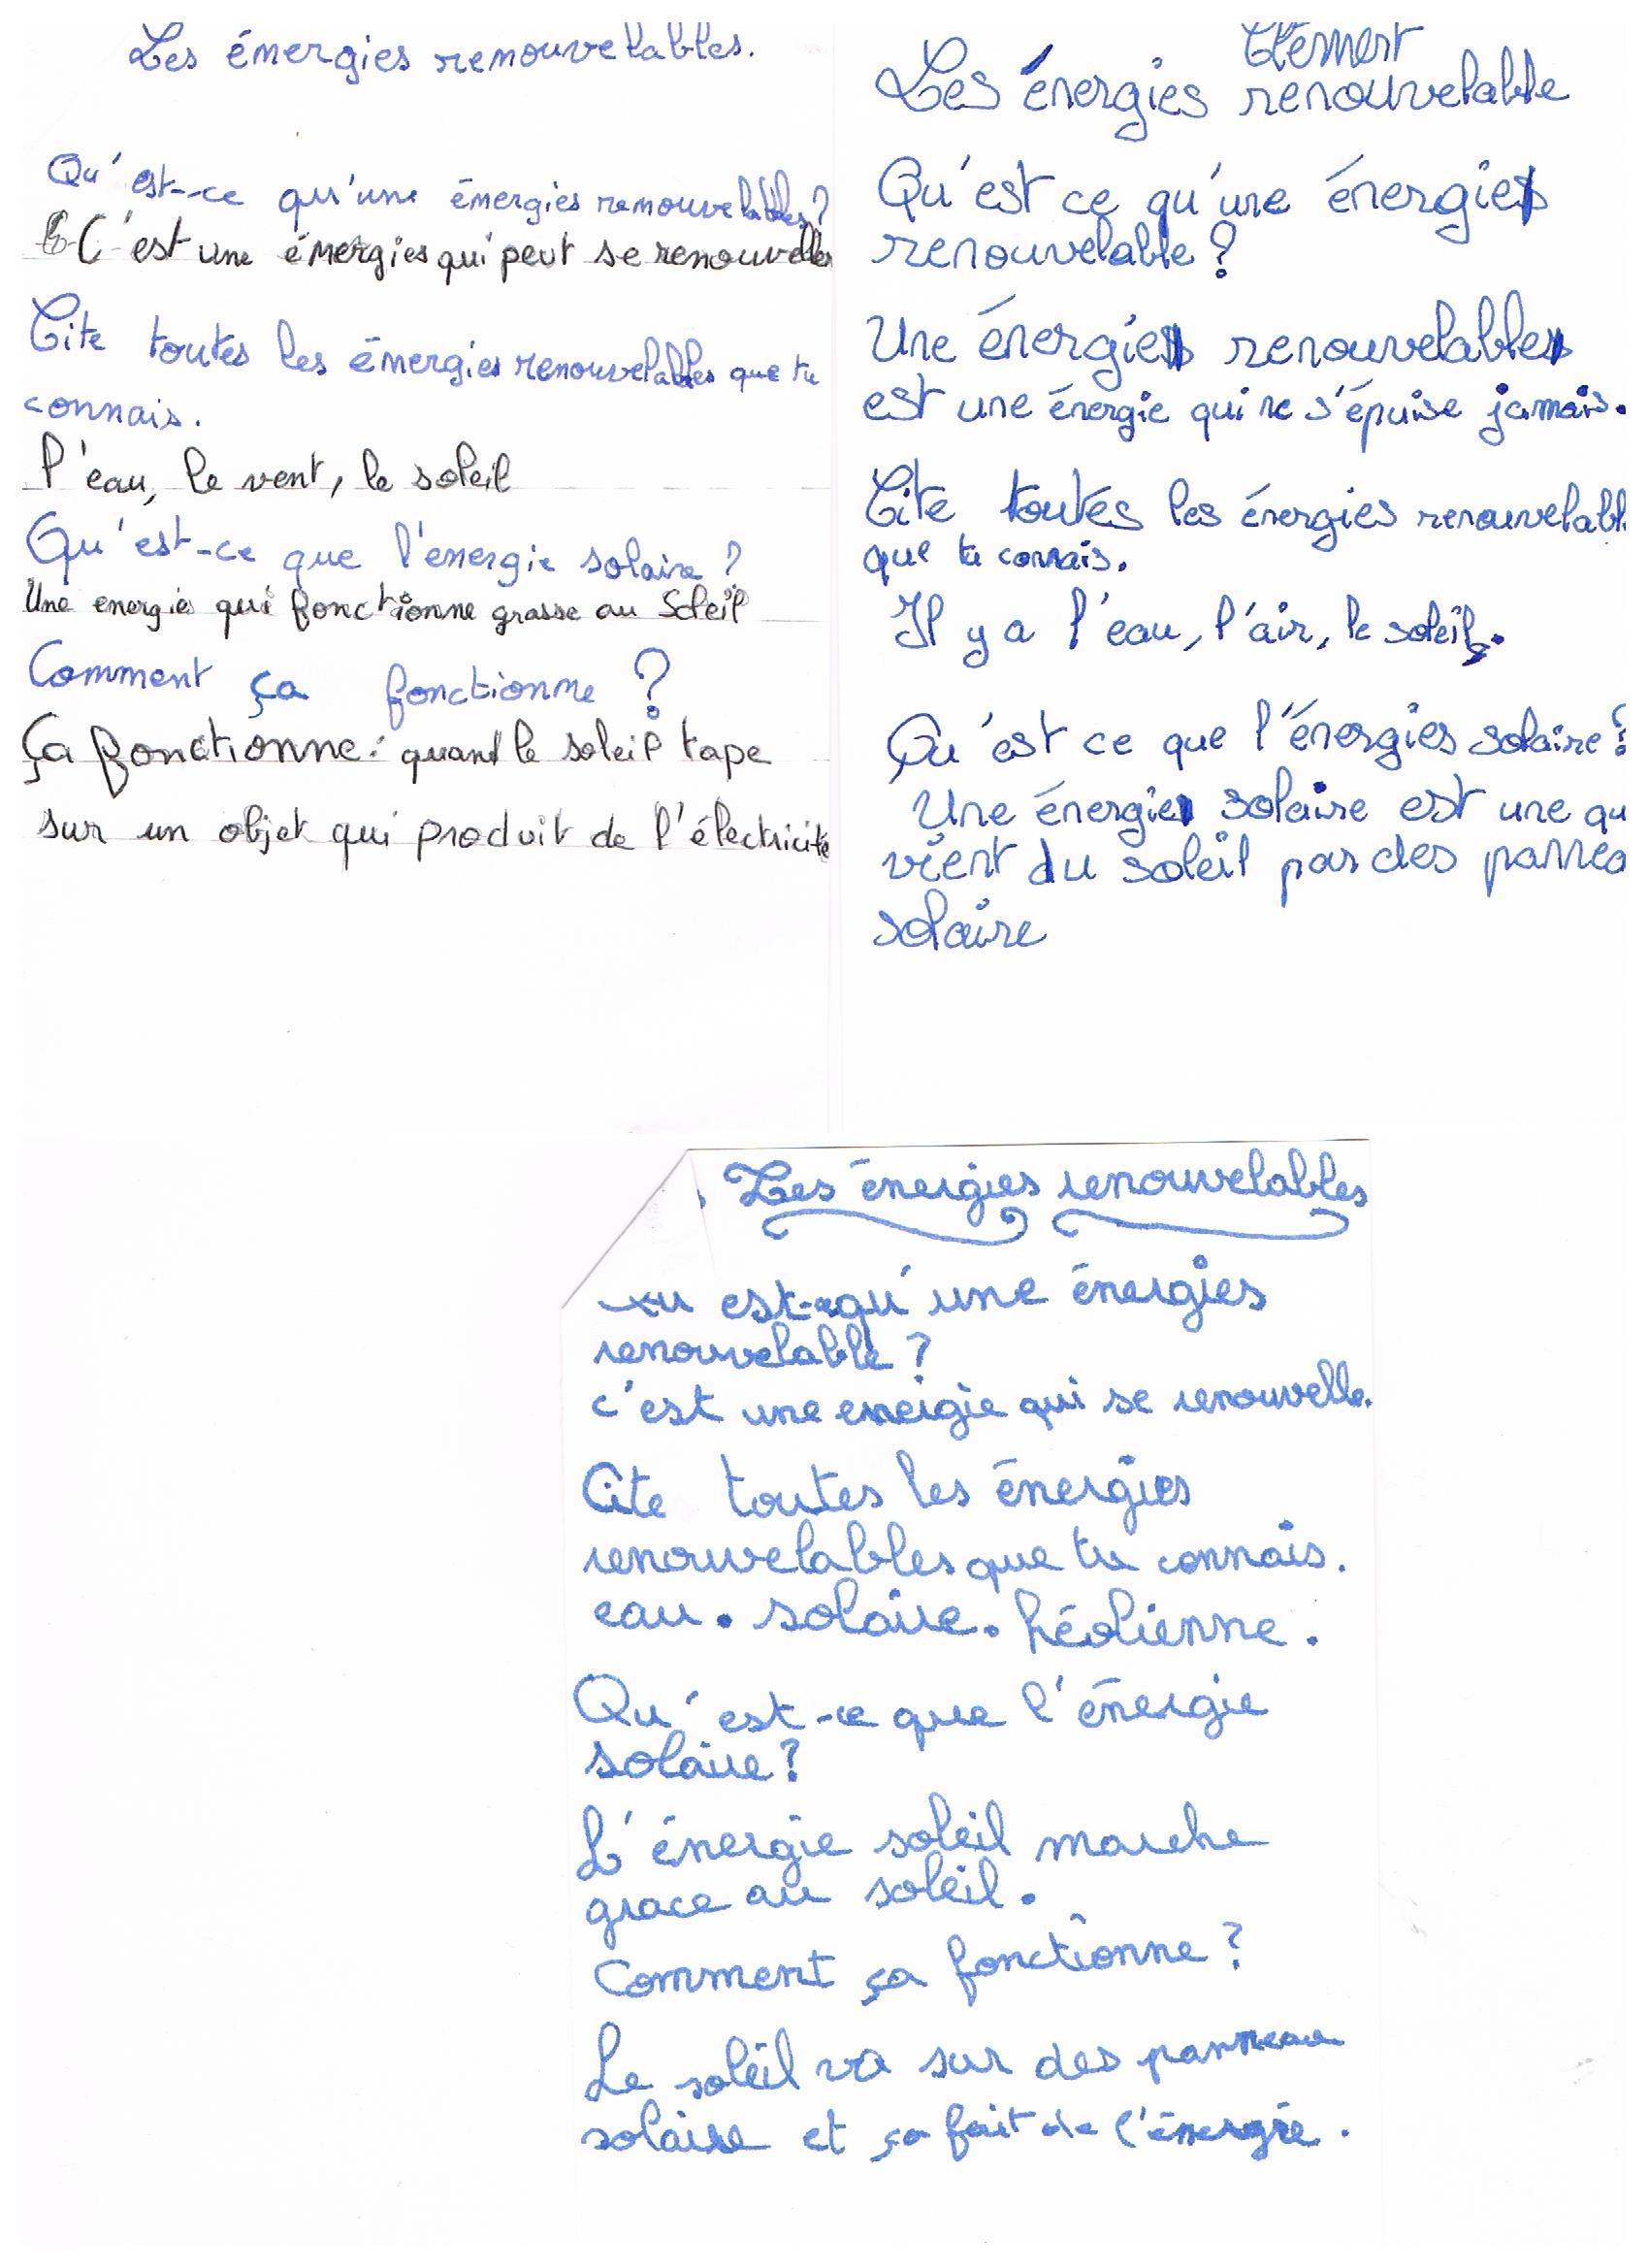 Les énergies renouvelables.
Qu'est-ce qu'une énergies renouvelables?
C'est une énergies qui peut se renouveller
Cite toutes les énergies renouvelables que tu
connais.
l'eau, le vent, le soleil
Qu'est-ce que l'énergie solaire ?
Une energie qui fonctionne grasse au Soleil
Comment ça fonctionne ?
Ça fonctionne: quand le soleil tape
sur un objet qui produit de l'électricité
Clément
Les énergies renouvelable
Qu'est ce qu'une énergie
renouvelable ?
Une énergie renouvelable
est une énergie qui ne s'épuise jamais.
Cite toutes les énergies renouvelabl
que tu connais.
Il y a l'eau, l'air, le soleil.
Qu'est ce que l'énergies solaire?
Une énergie solaire est une qu
vient du soleil par des pannea
solaire
Les énergies renouvelables
est-ce qu'une énergies
renouvelable ?
c'est une energie qui se renouvelle.
Cite toutes les énergies
renouvelables que tu connais.
eau. solaire. héolienne.
Qu'est-ce que l'énergie
solaire?
L'énergie soleil marche
grace au soleil.
Comment ça fonctionne ?
Le soleil va sur des panneau
solaire et ça fait de l'énergie.